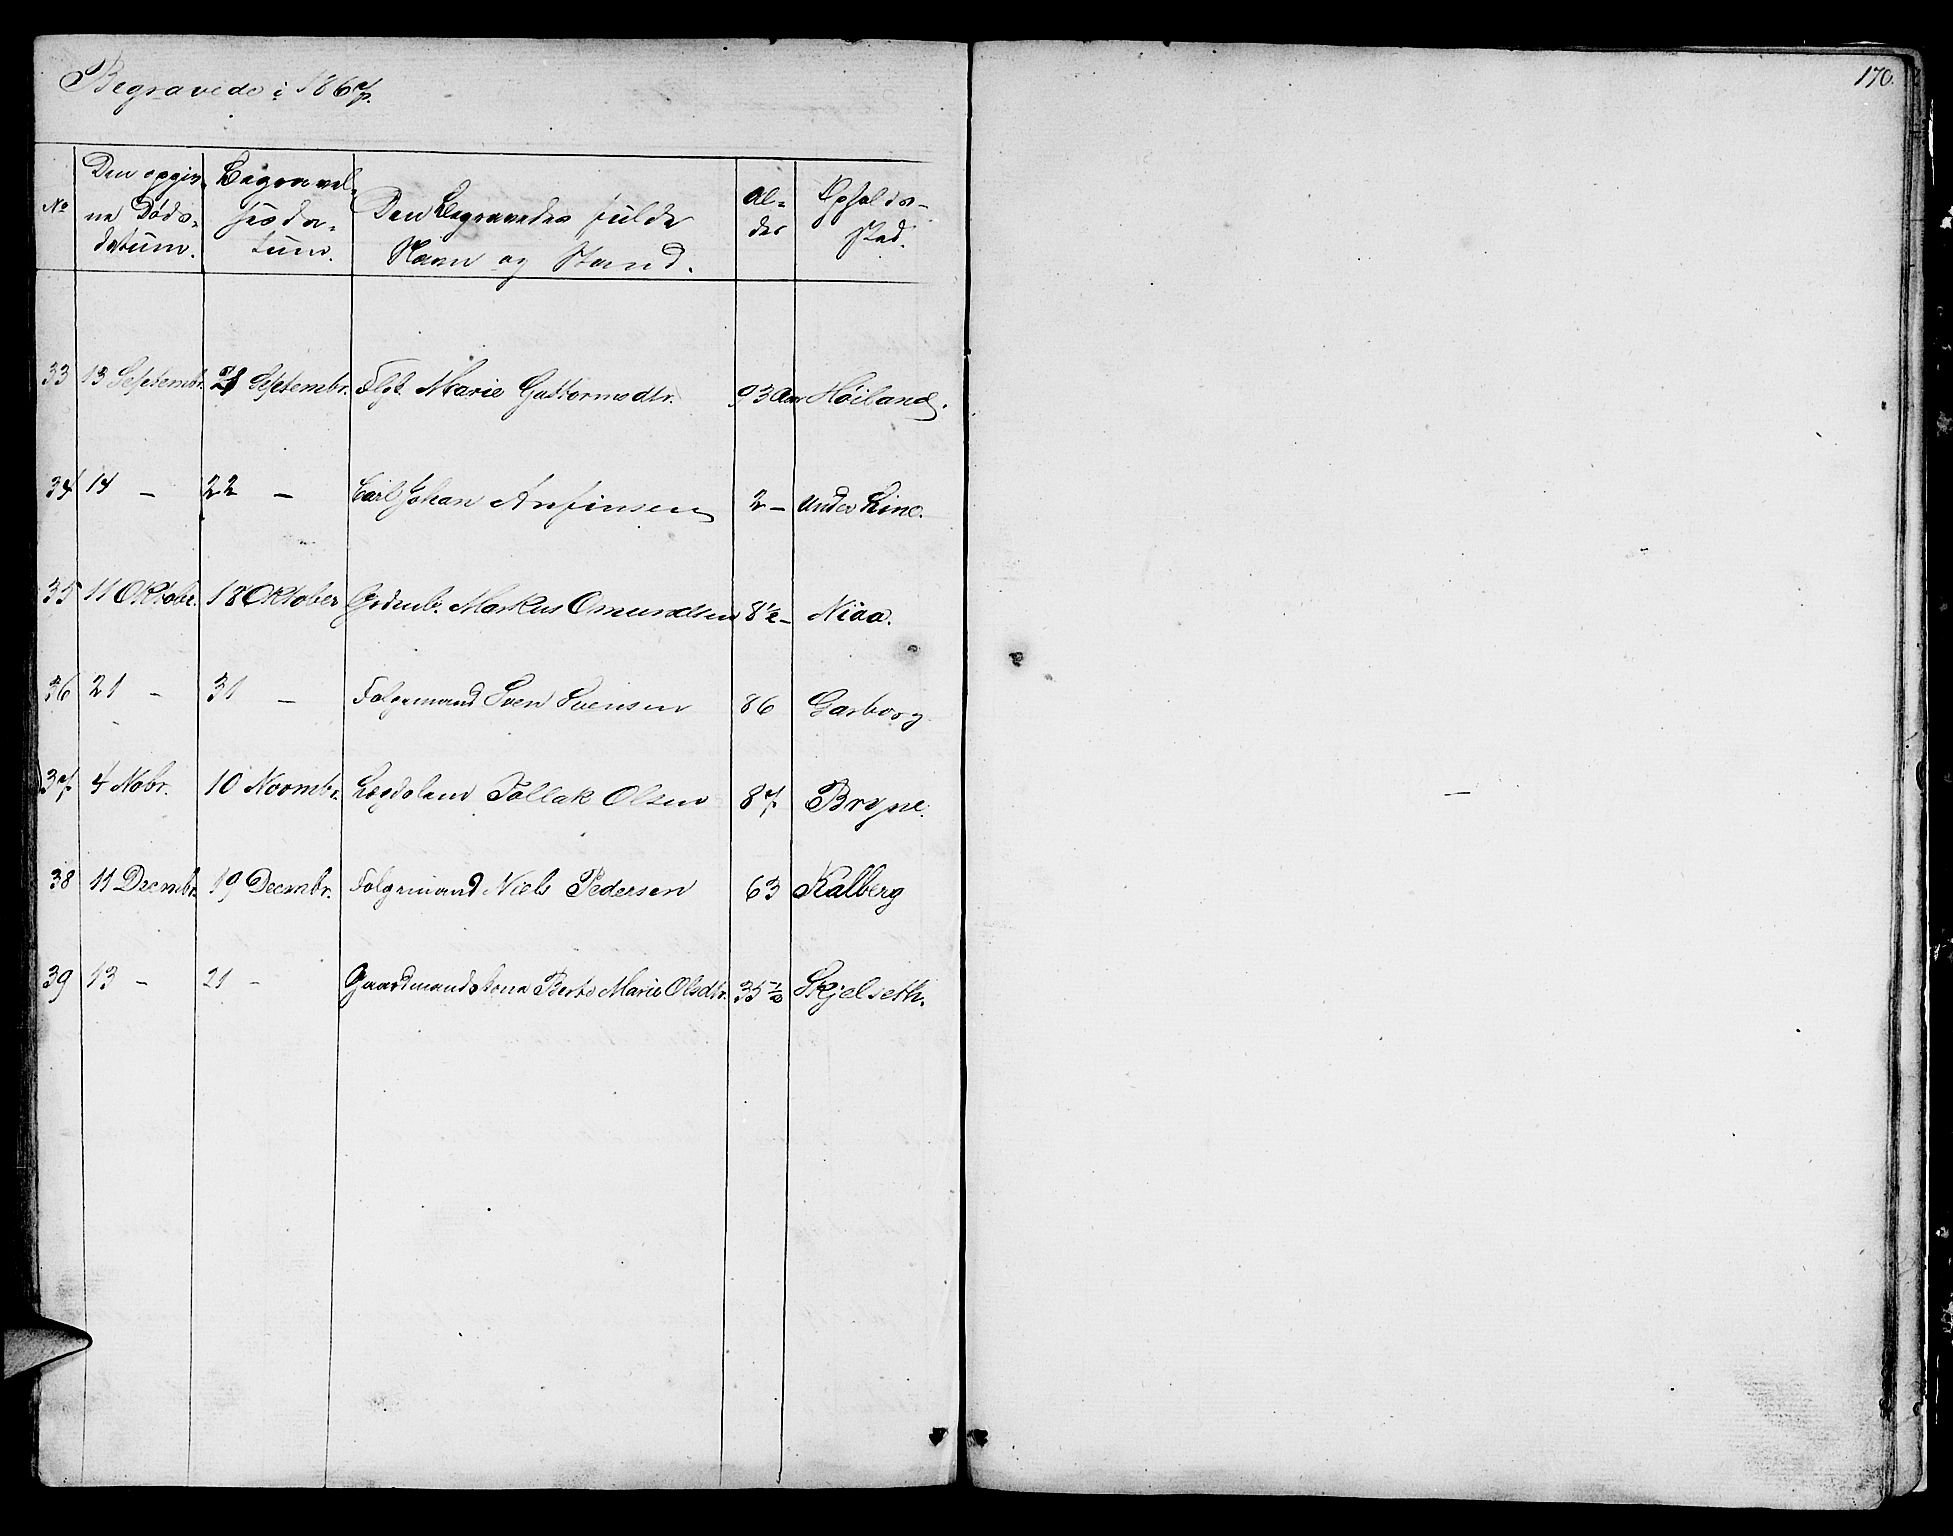 Begravede i 1867.
170.
No | Den opgiv- | Begravel- | Den Begravedes fulde | Al- | Opholds-
ne Døds- | sesda- | Navn og Stand. | der | sted.
datum. | tum.
33 | 13 Septembr. | 21 Septembr. | Flgk. Marie Guttormsdtr. | 93 Aar | Høiland.
34 | 14 - | 22 - | Carl Johan Anfinsen | 2 - | under Line.
35 | 11 Oktobr. | 18 Oktober | Grdmb. Markus Omundsen | 8 1/2 - | Niaa.
36 | 21 - | 31 - | Folgemand Sven Svensen | 86 | Garborg
37 | 4 Nobr. | 10 Novmbr. | Lægdslem Tollak Olsen | 87 | Bryne.
38 | 11 Decmbr. | 19 Decmbr. | Folgemand Niels Pedersen | 63 | Kalberg
39 | 13 - | 21 - | Gaardmandskona Berte Marie Olsdtr. | 35 1/2 | Skjelseth.